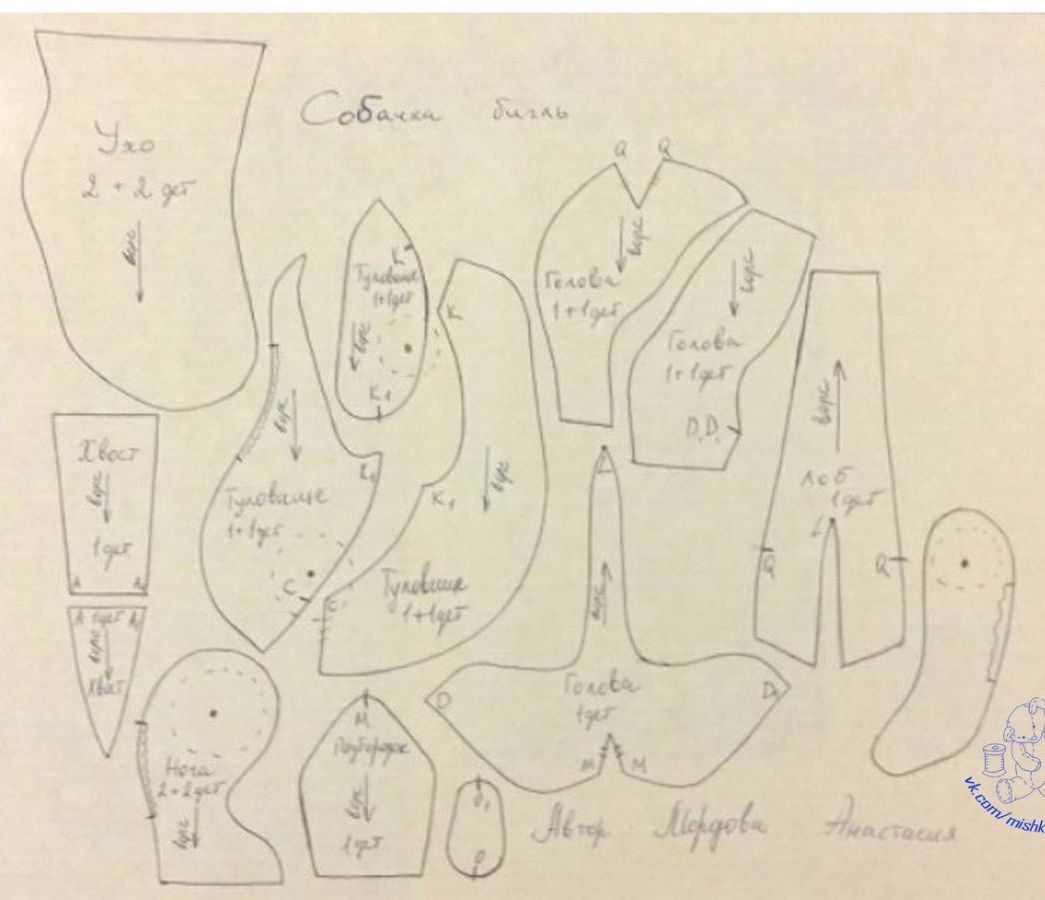 Собачка бигль
Ухо
2 + 2 дет
ворс
Q Q
ворс
Голова
1+1дет
К
Туловище
1+1дет
ворс
К1
ворс
Голова
1+1дет
D, D1
ворс
Лоб
1дет
L
Q Q
К
К1
ворс
Туловище
1+1дет
С
ворс
К1
Туловище
1+1дет
С
Хвост
ворс
1дет
А А1
А 1дет А1
ворс
Хвост
L
ворс
Голова
1дет
D D1
М М
Нога
2+2дет
ворс
М
Подбородок
ворс
1дет
O1
O
Автор Мордова Анастасия
vk.com/mishk